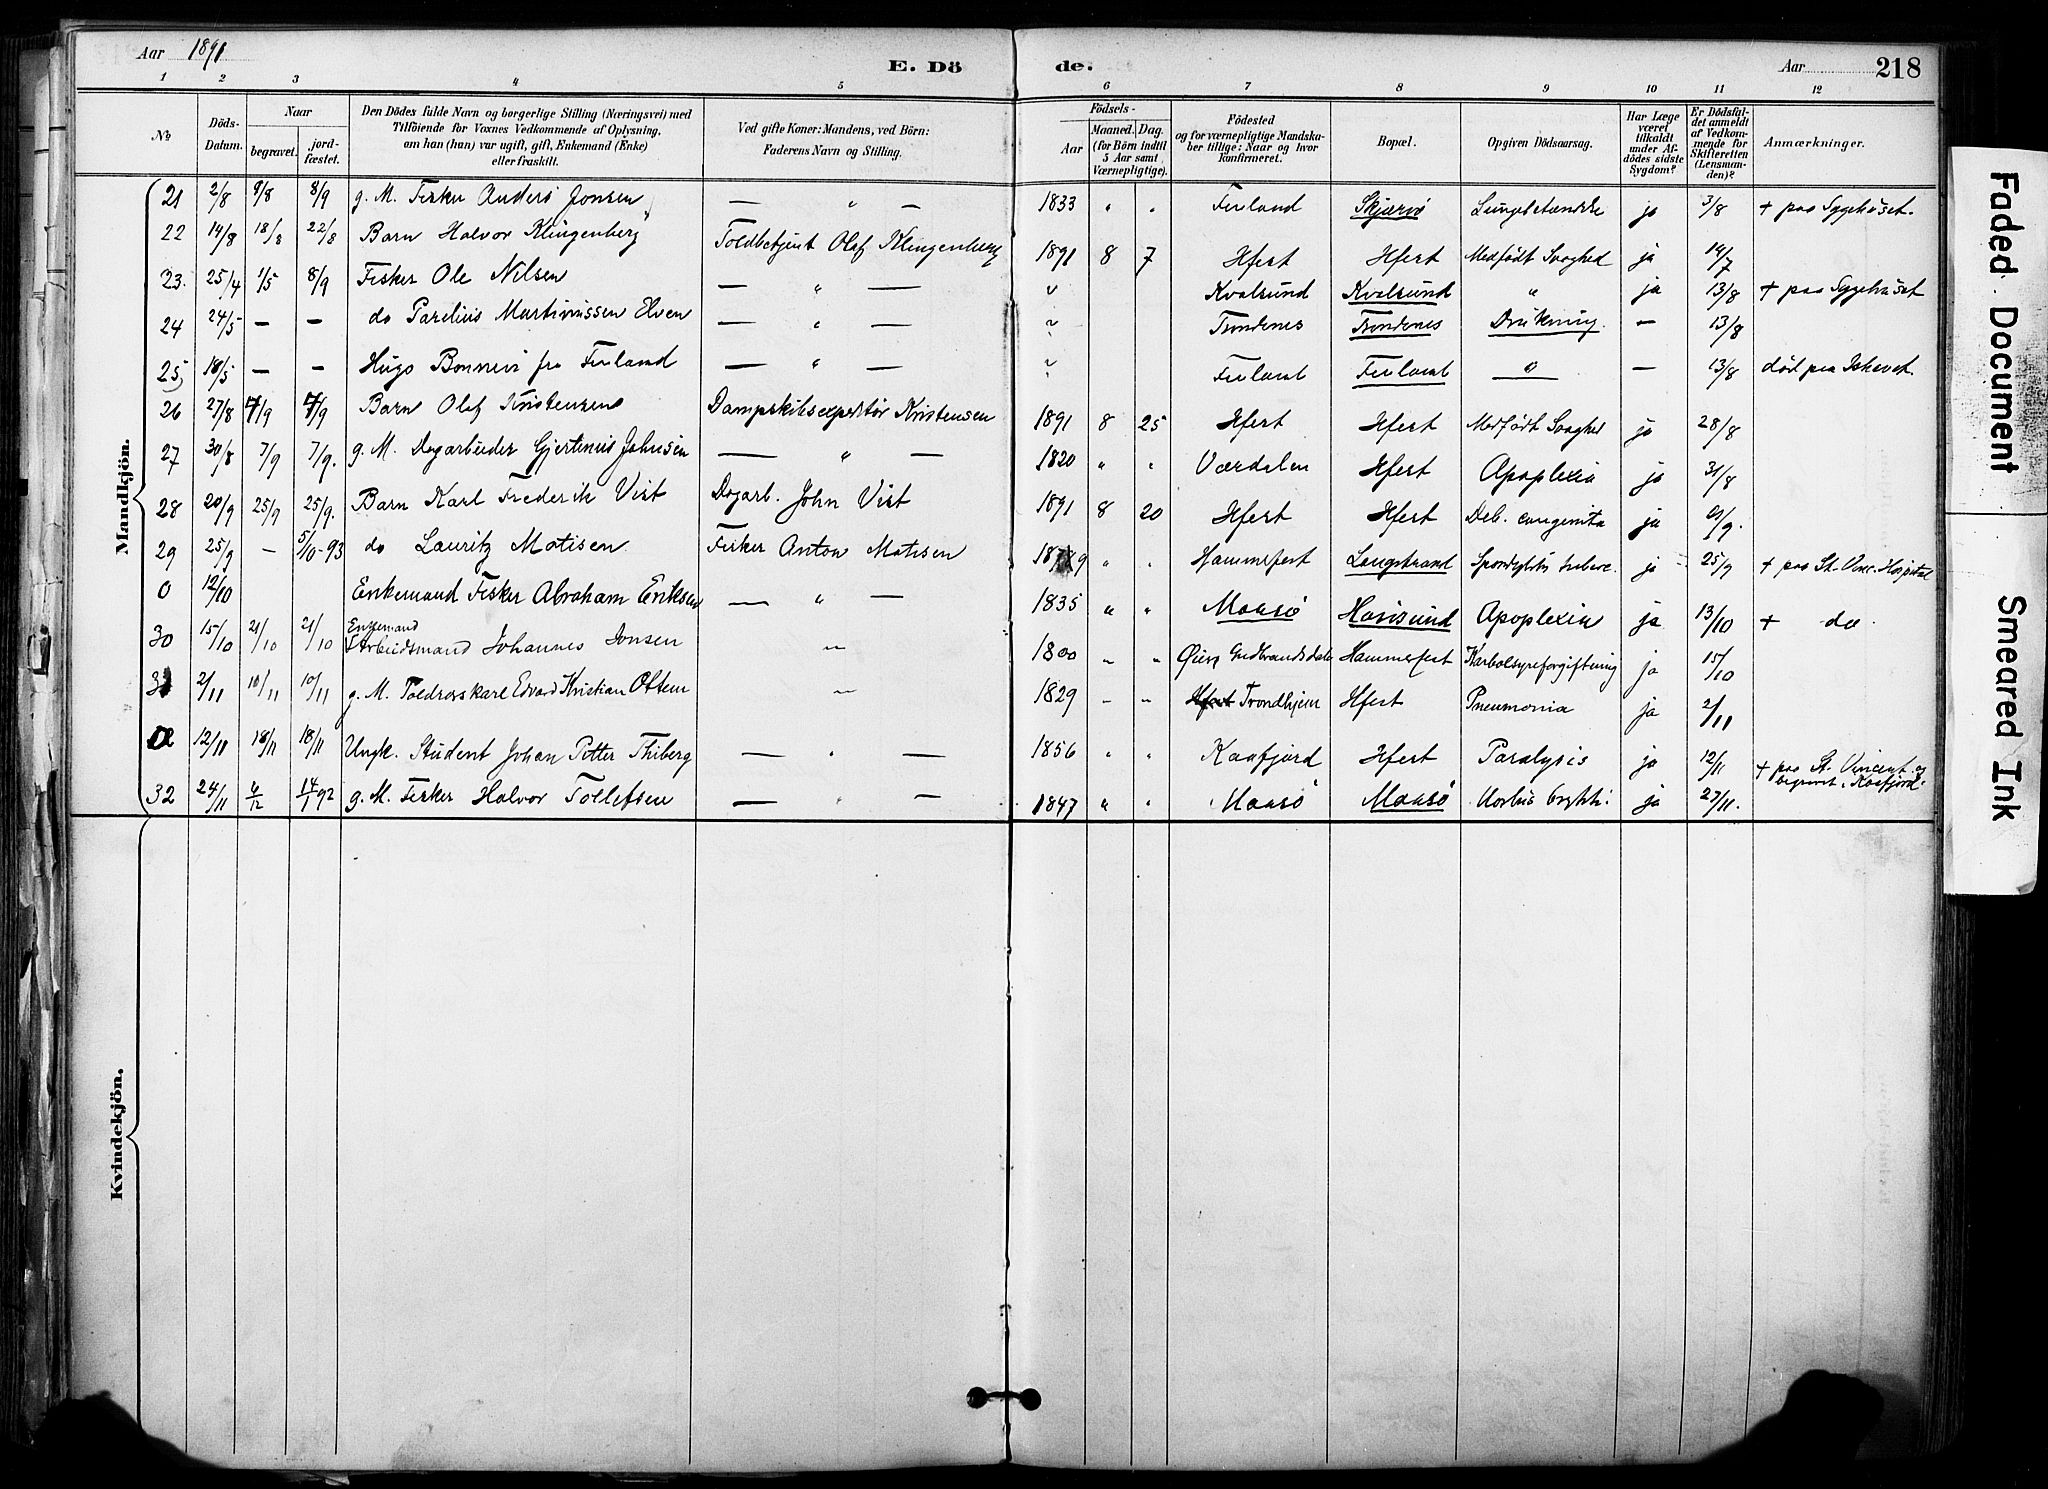 Aar 1891
E. Dö
de.
Aar 218
1 2 3 4 5 6 7 8 9 10 11 12
No
Döds-Datum.
Naar
begravet.
jord-fæstet.
Den Dödes fulde Navn og borgerlige Stilling (Næringsvei) med
Tilföiende for Voxnes Vedkommende af Oplysning,
om han (hun) var ugift, gift, Enkemand (Enke)
eller fraskilt.
Ved gifte Koner: Mandens, ved Börn:
Faderens Navn og Stilling.
Födsels-
Aar
Maaned. Dag.
(for Börn indtil
5 Aar samt
Værnepligtige).
Födested
og for værnepligtige Mandska-
ber tillige: Naar og hvor
konfirmeret.
Bopæl.
Opgiven Dödsaarsag.
Har Læge
været
tilkaldt
under Af-
dødes sidste
Sygdom?
Er Dødsfal-
det anmeldt
af Vedkom-
mende for
Skifteretten
(Lensman-
den)?
Anmærkninger.
Mandkjön.
21 2/8 9/8 8/9 g. M. Fisker Anders Jonsen — " — 1833 " " Finland Skjærvö Lungebetændelse ja 3/8 + paa Sygehuset.
22 14/8 18/8 22/8 Barn Halvor Klingenberg Toldbetjent Olaf Klingenberg 1891 8 7 Hfest Hfest Medfødt Svaghed ja 14/7
23. 25/4 1/5 8/9 Fisker Ole Nilsen — " — Kvalsund Kvalsund " ja 13/8 + paa Sygehuset
24 24/5 — — do Parelius Martinussen Elven — " — Trondenes Trondenes Drukning. — 13/8
25 18/5 — — Hugo Bonnevi fra Finland — " — Finland Finland " — 13/8 död paa Ishavet.
26 27/8 7/9 7/9 Barn Olaf Kristensen Dampskibsexpeditör Kristensen 1891 8 25 Hfest Hfest Medfødt Svaghed ja 28/8
27 30/8 7/9 7/9. g. M. Dagarbeider Gjertinius Johnsen — " — 1820 " " Værdalen Hfest Apoplexia ja 31/8
28 20/9 25/9 25/9. Barn Karl Frederik Vist Dagarb. John Vist 1891 8 20 Hfest Hfest Deb. congenita ja 21/9.
29 25/9 — 5/10-93 do Lauritz Matisen Fisker Anton Matisen " " Hammerfest Langstrand Spondylitis tuberc. ja 25/9 + paa St. Vinc. Hospital
0 12/10 Enkemand Fisker Abraham Eriksen — " — 1835 " " Maasö Havösund Apoplexia ja 13/10 + do.
30 15/10 21/10 21/10 Enkemand Arbeidsmand Johannes Jonsen " 1800 " " Öier Gudbrandsdalen Hammerfest Karbolsyreforgiftning ja 15/10
31 2/11 10/11 10/11 g. M. Toldroerskarl Edvard Kristian Ottem " 1829 " " Hfest Trondhjem Hfest Pneumonia ja 2/11
0 12/11 18/11 18/11 Ungk. Student Johan Petter Thiberg — " — 1856 " " Kaafjord Hfest Paralysis ja 12/11 + paa St. Vincent og begravet i Kaafjord.
32 24/11 4/12 14/1 92 g. M. Fisker Halvor Tollefsen — " — 1847 " " Maasö Maasö Morbus brightii ja 27/11.
Kvindekjön.
Faded Document
Smeared Ink